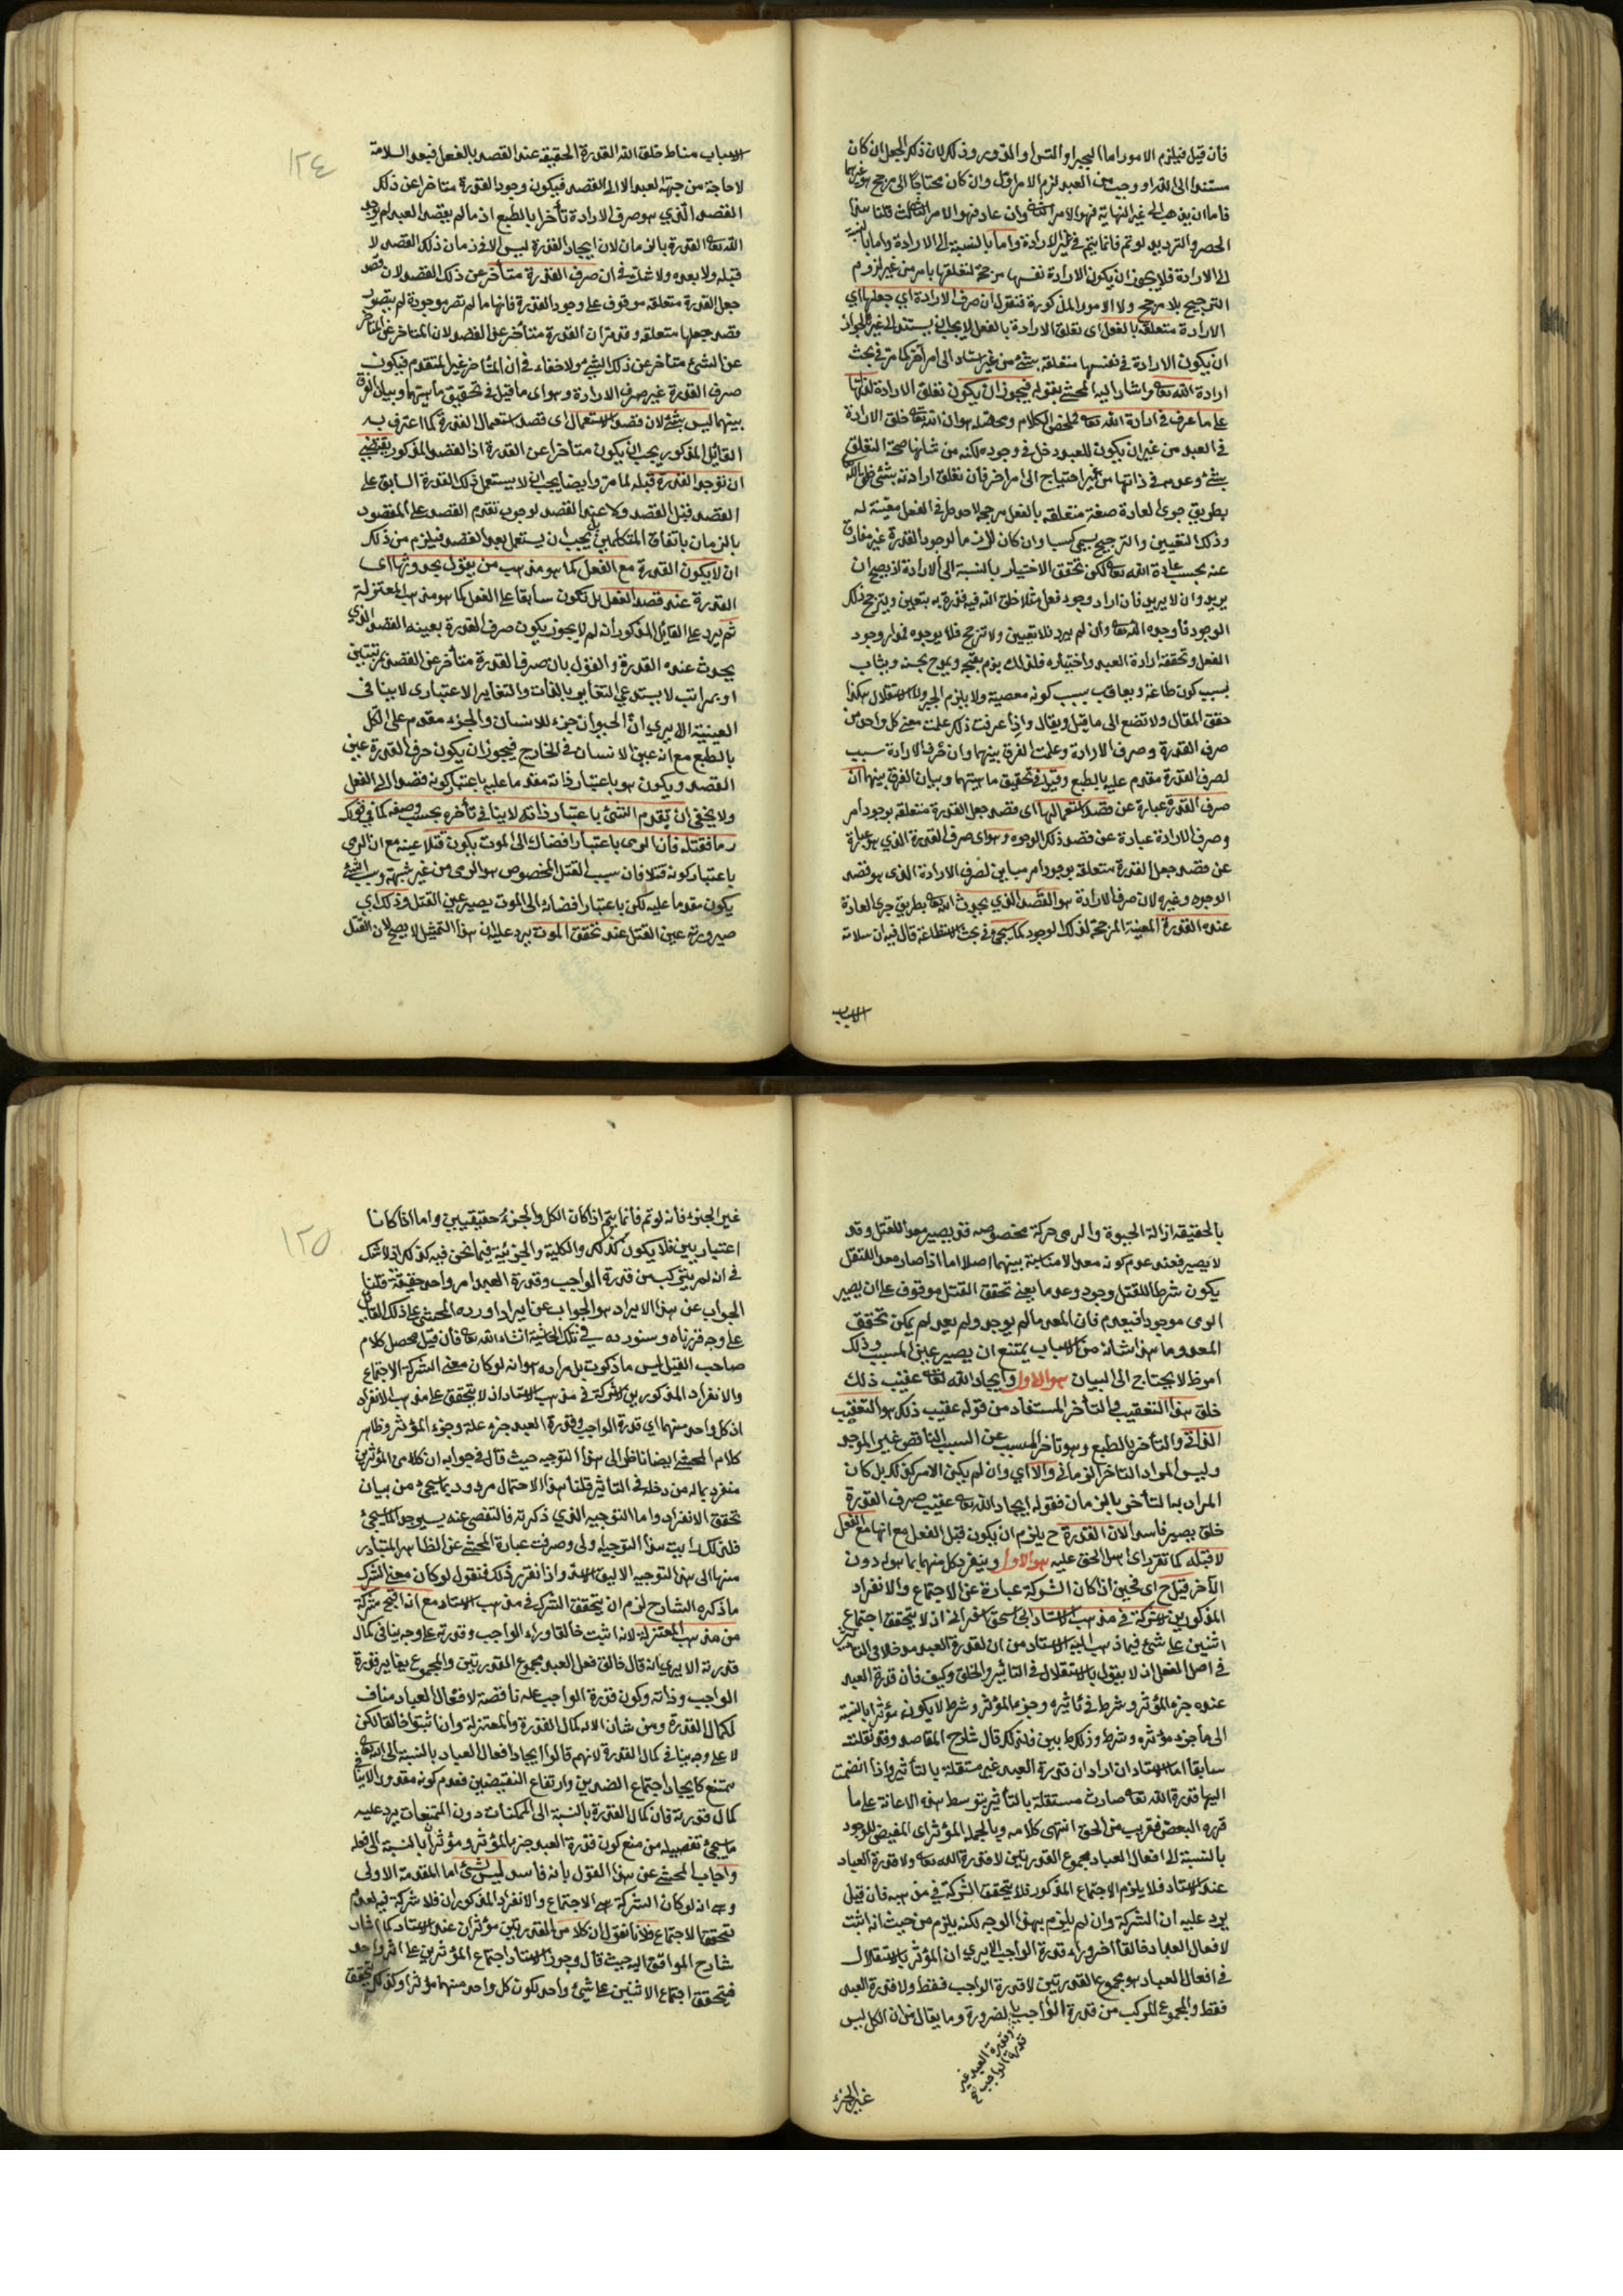 فان قيل فيلزم الامور اما الجبر او التس او الدور وذلك لان ذكر الجعل ان كان
مستندا الى الله او وجب من العبد لزم الامر الاول وان كان محتاجا الى مرجح هو غيرهما
فاما ان يذهب الى غير النهاية فهو الامر الثاني وان عاد فهو الامر الثالث قلنا هذا
الحصر والترديد لو تم فانما يتم في غير الارادة واما بالنسبة الى الارادة واما بالنسبة
الى الارادة فلا يجوز ان يكون الارادة نفسها مرجحة لتعلقها بامر من غير لزوم
الترجيح بلا مرجح ولا الامور المذكورة فنقول ان صرف الارادة اي جعلها اي
الارادة متعلقة بالفعل اى تعلق الارادة بالفعل لا يجب ان يستند الى غيرها لجواز
ان يكون الارادة في نفسها متعلقة بشئ من غير استناد الى امر آخر كما مر في بحث
ارادة الله تعالى واشار اليه المحشي بقوله فيجوز ان يكون تعلق الارادة لذاتها
على ما عرف في ارادة الله تعالى فملخص الكلام ومحصله هو ان الله تعالى خلق الارادة
في العبد من غير ان يكون للعبد دخل في وجوده لكنه من شانها صحة التعلق
بشئ وعدمه في ذاتها من غير احتياج الى امر اخر فان تعلق ارادته بشئ خلق الله
بطريق جرى العادة صفة متعلقة بالفعل مرجحة لاحد طرفي الفعل معينة له
وذلك التعيين والترجيح يسمى كسبا وان كان لازما لوجود القدرة غير مفارق
عنه بحسب عادة الله تعالى لكن تحقق الاختيار بالنسبة الى الارادة اذ يصح ان
يريد وان لا يريد فان اراد وجود فعل مثلا خلق الله فيه قدرة به يتعين ويترجح ذلك
الوجود فاوجده الله تعالى وان لم يرد فلا تعيين ولا ترجح فلا يوجد فمدار وجود
الفعل وتحققه ارادة العبد واختياره فلذلك يذم بقبحه ويمدح بحسنه ويثاب
بسبب كون طاعة ويعاقب بسبب كونه معصية ولا يلزم الجبر ولا الاستقلال هكذا
حقق المقال ولا تضع الى ما قيل ويقال واذا عرفت ذلك علمت معنى كل واحد من
صرف القدرة وصرف الارادة وعلمت الفرق بينهما وان صرف الارادة سبب
لصرف القدرة مقدم عليه بالطبع وقيل في تحقيق ماهيتهما وبيان الفرق بينهما ان
صرف القدرة عبارة عن قصد استعمالها اى قصد جعل القدرة متعلقة بوجود امر
وصرف الارادة عبارة عن قصد ذلك الوجود وهو اى صرف القدرة الذي هو عبارة
عن قصد جعل القدرة متعلقة بوجود امر مباين لصرف الارادة الذى هو قصد
الوجود وغيره لان صرف الارادة هو القصد الذي يحدث الله تعالى بطريق جرى العادة
عنده القدرة المعينة المرجحة لذلك الوجود كما سيجئ في بحث الاستطاعة قال فيه ان سلامة
الاسباب
الاسباب مناط خلق الله القدرة الحقيقة عند القصد بالفعل فبعد السلامة
لا حاجة من جهة العبد الا الى القصد فيكون وجود القدرة متاخرا عن ذلك
القصد الذي هو صرف الارادة تأخرا بالطبع اذ ما لم يقصد العبد لم يوجد
الله تعالى القدرة بالزمان لان ايجاد القدرة ليس الا في زمان ذلك القصد لا
قبله ولا بعده ولا شك في ان صرف القدرة متأخر عن ذلك القصد لان قصد
جعل القدرة متعلقة موقوف على وجود القدرة فانها ما لم تصر موجودة لم يتصور
قصد جعلها متعلقة وقد مر ان القدرة متأخر عن القصد لان المتاخر عن المتاخر
عن الشئ متأخر عن ذلك الشئ ولا خفاء في ان المتاخر غير المتقدم فيكون
صرف القدرة غير صرف الارادة وهو اى ما قيل في تحقيق ماهيتهما وبيان الفرق
بينهما ليس بشئ لان قصد الاستعمال اى قصد استعمال القدرة كما اعترف به
القائل المذكور يجب ان يكون متأخرا عن القدرة اذ القصد المذكور يقتضي
ان توجد القدرة قبله لما مر وايضا يجب ان لا يستعمل تلك القدرة السابق على
القصد قبل القصد ولا عند القصد لوجوب تقدم القصد على المقصود
بالزمان باتفاق المتكلمين بل يجب ان يستعمل بعد القصد فيلزم من ذلك
ان لا يكون القدرة مع الفعل كما هو مذهب من يقول بحدوثها اى
القدرة عند قصد الفعل بل تكون سابقا على الفعل كما هو مذهب المعتزلة
ثم يرد على القائل المذكور انه لم لا يجوز ان يكون صرف القدرة بعينه القصد الذي
يحدث عنده القدرة والقول بان صرف القدرة متأخر عن القصد بمرتبتين
او بمراتب لا يستدعي التغاير بالذات والتغاير الاعتبارى لا ينافى
العينية الا يرى ان الحيوان جزء للانسان والجزء مقدم على الكل
بالطبع مع انه عين الانسان في الخارج فيجوز ان يكون صرف القدرة عين
القصد ويكون هو باعتبار ذاته مقدما عليه باعتبار كونه قصدا الى الفعل
ولا يخفى ان تقدم الشئ باعتبار ذاته لا ينافى تأخره بحسب وصفه كما في قولك
رماه فقتله فان الرمى باعتبار افضائه الى الموت يكون قتلا عينه مع ان الرمى
باعتبار كونه قتلا فان سبب القتل المخصوص هو الرمى من غير شبهة وسبب الشئ
يكون مقدما عليه لكن باعتبار افضائه الى الموت يصير عين القتل وذلك اي
صيرورته عين القتل عند تحقق الموت يرد عليه ان هذا التمثيل لا يصح لان القتل
١٢٤
بالحقيقة ازالة الحيوة والرمى حركة مخصوصة قد يصير معدا للقتل وقد
لا يصير فعند عدم كونه معدا لا مناسبة بينهما اصلا اما اذا صار معدا للقتل
يكون شرطا للقتل وجودا وعدما يعنى تحقق القتل موقوف على ان يصير
الرمى موجودا فيعدم فان المعد ما لم يوجد ولم يعدم لم يمكن تحقق
المعد وما هذا شانه من الاسباب يمتنع ان يصير عين المسبب وذلك
امر ظ لا يحتاج الى البيان هو الاول وايجاد الله تعالى عقيب ذلك
خلق هذا التعقيب والتأخر المستفاد من قوله عقيب ذلك هو التعقيب
الذاتى والتأخر بالطبع وهو تاخر المسبب عن السبب الناقص غير الموجد
وليس المراد التاخر الزمانى والا اي وان لم يكن الامر كذلك بل كان
المراد به التأخر بالزمان فقوله ايجاد الله تعالى عقيب صرف القدرة
خلق يصير فاسدا لان القدرة ح يلزم ان يكون قبل الفعل مع انها مع الفعل
لا قبله كما تقرر اى اهل الحق عليه هو الاول وينفرد كل منهما بما هو له دون
الآخر قيل ح اى فحين اذ كان الشركة عبارة عن الاجتماع والانفراد
المذكورين لا شركة في مذهب الاستاد ابى اسحق الاسفرائنى اذ لا يتحقق اجتماع
اثنين على شئ فيما ذهب اليه الاستاد من ان لقدرة العبد مدخلا فى التأثير
في اصل الفعل اذ لا يقول بالاستقلال في التاثير والخلق وكيف فان قدرة العبد
عنده جزء المؤثر وشرط في تاثيره وجزء المؤثر وشرط لا يكون مؤثرا بالنسبة
الى ما جزء مؤثره وشرط وذلك ظ بين فلذلك قال شارح المقاصد وقد نقلته
سابقا اما الاستاد ان اراد ان قدرة العبد غير مستقلة بالتأثير واذا انضمت
اليها قدرة الله تعالى صارت مستقلة بالتأثير بتوسط هذه الاعانة على ما
قرره البعض فقريب من الحق انتهى كلامه وبالجملة المؤثر اى المفيض للوجود
بالنسبة الى افعال العباد مجموع القدرتين لا قدرة الله تعالى ولا قدرة العباد
عند الاستاد فلا يلزم الاجتماع المذكور فلا يتحقق الشركة في مذهبه فان قيل
يرد عليه ان الشركة وان لم يلزم بهذا الوجه لكنه يلزم من حيث انه اثبت
لافعال العباد خالقا اخر وراء قدرة الواجب الا يرى ان المؤثر بالاستقلال
في افعال العباد هو مجموع القدرتين لا قدرة الواجب فقط ولا قدرة العبد
فقط والمجموع المركب من قدرة الواجب بالضرورة وما يقال من ان الكل ليس
وقدرة العبد غير
قدرة الواجب
غير الجزء
غير الجزء فانه لو تم فانما يتم اذا كان الكل والجزء حقيقيين واما اذا كانا
اعتباريين فلا يكون كذلك والكلية والجزئية فيما نحن فيه كذلك اذ لا شك
في انه لم يتركب من قدرة الواجب وقدرة العبد امر واحد حقيقة قلنا
الجواب عن هذا الايراد هو الجواب عن ايراد اورده المحشى على ذلك القائل
على وجه قررناه وسنورده في تلك الحاشية انشاء الله تعالى فان قيل محصل كلام
صاحب القيل ليس ما ذكرت بل مراده هو انه لو كان معنى الشركة الاجتماع
والانفراد المذكورين لا شركة في مذهب الاستاد اذ لا يتحقق على مذهبه الانفراد
اذ كل واحد منهما اي قدرة الواجب وقدرة العبد جزء علة وجزء المؤثر وظاهر
كلام المحشي ايضا ناظر الى هذا التوجيه حيث قال في جوابه ان كلا من المؤثرين
منفرد بماله من دخله في التاثير قلنا هذا الاحتمال مردود بما سيجئ من بيان
تحقق الانفراد واما التوجيه الذي ذكرته فالتفصى عنه سيوجد كما سيجئ
فلذلك رايت هذا التوجيه اولى وصرفت عبارة المحشى عن الظاهر المتبادر
منها الى هذا التوجيه الاليق واذا تقرر ذلك فنقول لو كان معنى الشرك
ما ذكره الشارح لزم ان يتحقق الشرك في مذهب الاستاد مع انه اقبح شركة
من مذهب المعتزلة لانه اثبت خالقا وراء الواجب وقدرته على وجه ينافى كمال
قدرته الا يرى انه قال خالق فعل العبد مجموع القدرتين والمجموع يغاير قدرة
الواجب وذاته وكون قدرة الواجب علة ناقصة لافعال العباد مناف
لكمال القدرة ومن شان الاله كمال القدرة والمعتزلة وان اثبتوا خالقا لكن
لا على وجه ينافى كمال القدرة لانهم قالوا ايجاد افعال العباد بالنسبة الى الله تعالى
ممتنع كايجاد اجتماع الضدين وارتفاع النقيضين فعدم كونه مقدورا لا ينافى
كمال قدرته فان كمال القدرة بالنسبة الى الممكنات دون الممتنعات يرد عليه
ما سيجئ تفصيله من منع كون قدرة العبد جزء المؤثر ومؤثرا بالنسبة الى فعله
واجاب المحشى عن هذا القول بانه فاسد ليس بشئ اما المقدمة الاولى
وهى انه لو كان الشركة هى الاجتماع والانفراد المذكوران فلا شركة فيه لعدم
تحقق الاجتماع فلانا نقول ان كلا من القدرتين مؤثران عند الاستاد كما اشار
شارح المواقف اليه حيث قال وجوز الاستاد اجتماع المؤثرين على اثر واحد
فتحقق اجتماع الاثنين على شئ واحد بكون كل واحد منهما مؤثرا وكذلك تحقق
١٢٥